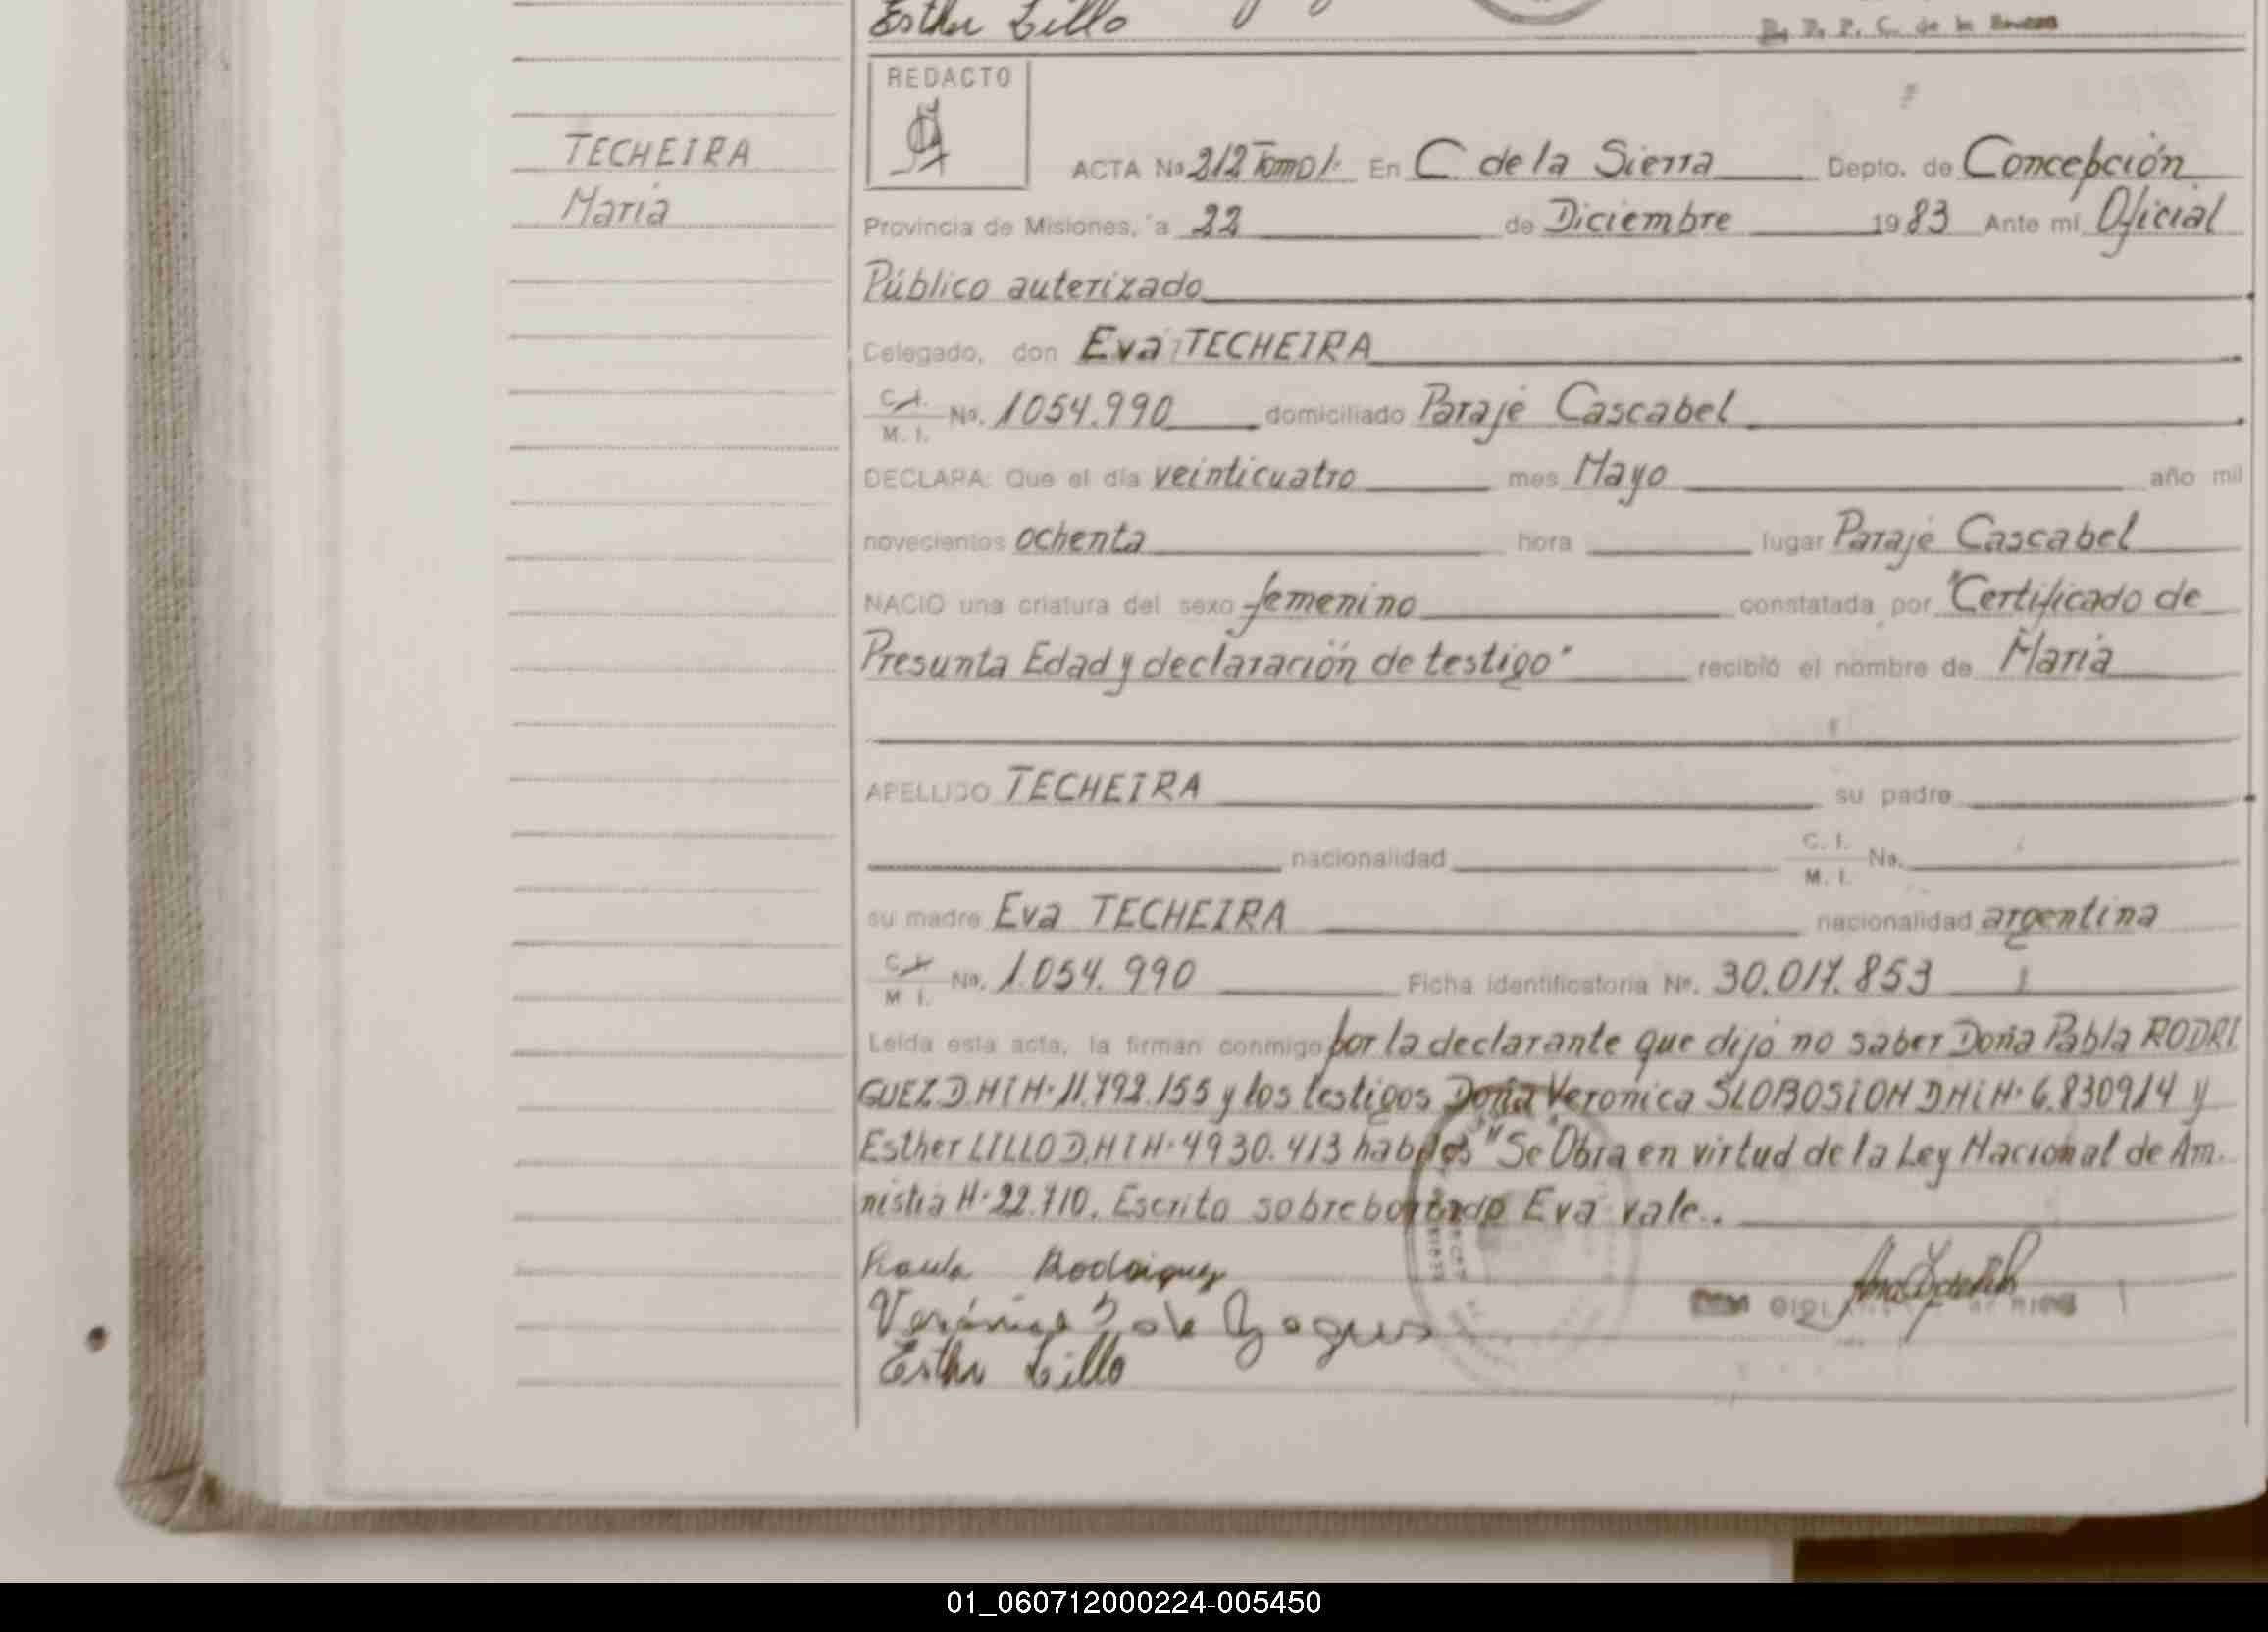 Esther Lillo
REDACTO
TECHEIRA
Maria
ACTA No 212 Tomo 1· En C. de la Sierra Depto. de Concepción
Provincia de Misiones, a 22 de Diciembre 1983 Ante mí Oficial
Público auterizado
Delegado, don Eva TECHEIRA
C. I. M. I. No. 1054.990 domiciliado Paraje Cascabel
DECLARA: Que el día veinticuatro mes Mayo año mil
novecientos ochenta hora lugar Paraje Cascabel
NACIO una criatura del sexo femenino constatada por "Certificado de
Presunta Edad y declaración de testigo" recibió el nombre de Maria
APELLIDO TECHEIRA su padre
nacionalidad C. I. M. I. No.
su madre Eva TECHEIRA nacionalidad argentina
C. I. M. I. No. 1.054.990 Ficha identificatoria No. 30.017.853
Leída esta acta, la firman conmigo por la declarante que dijo no saber Doña Pabla RODRI
GUEZ D.N.I.N· 11.792.155 y los testigos Doña Veronica SLOBOSION DNIN· 6.830914 y
Esther LILLO D.N.I.N· 4930.413 habiles "Se Obra en virtud de la Ley Nacional de Am-
nistia N· 22.710. Escrito sobreborrado Eva vale..
Rodriguez
Esther Lillo
01_060712000224-005450